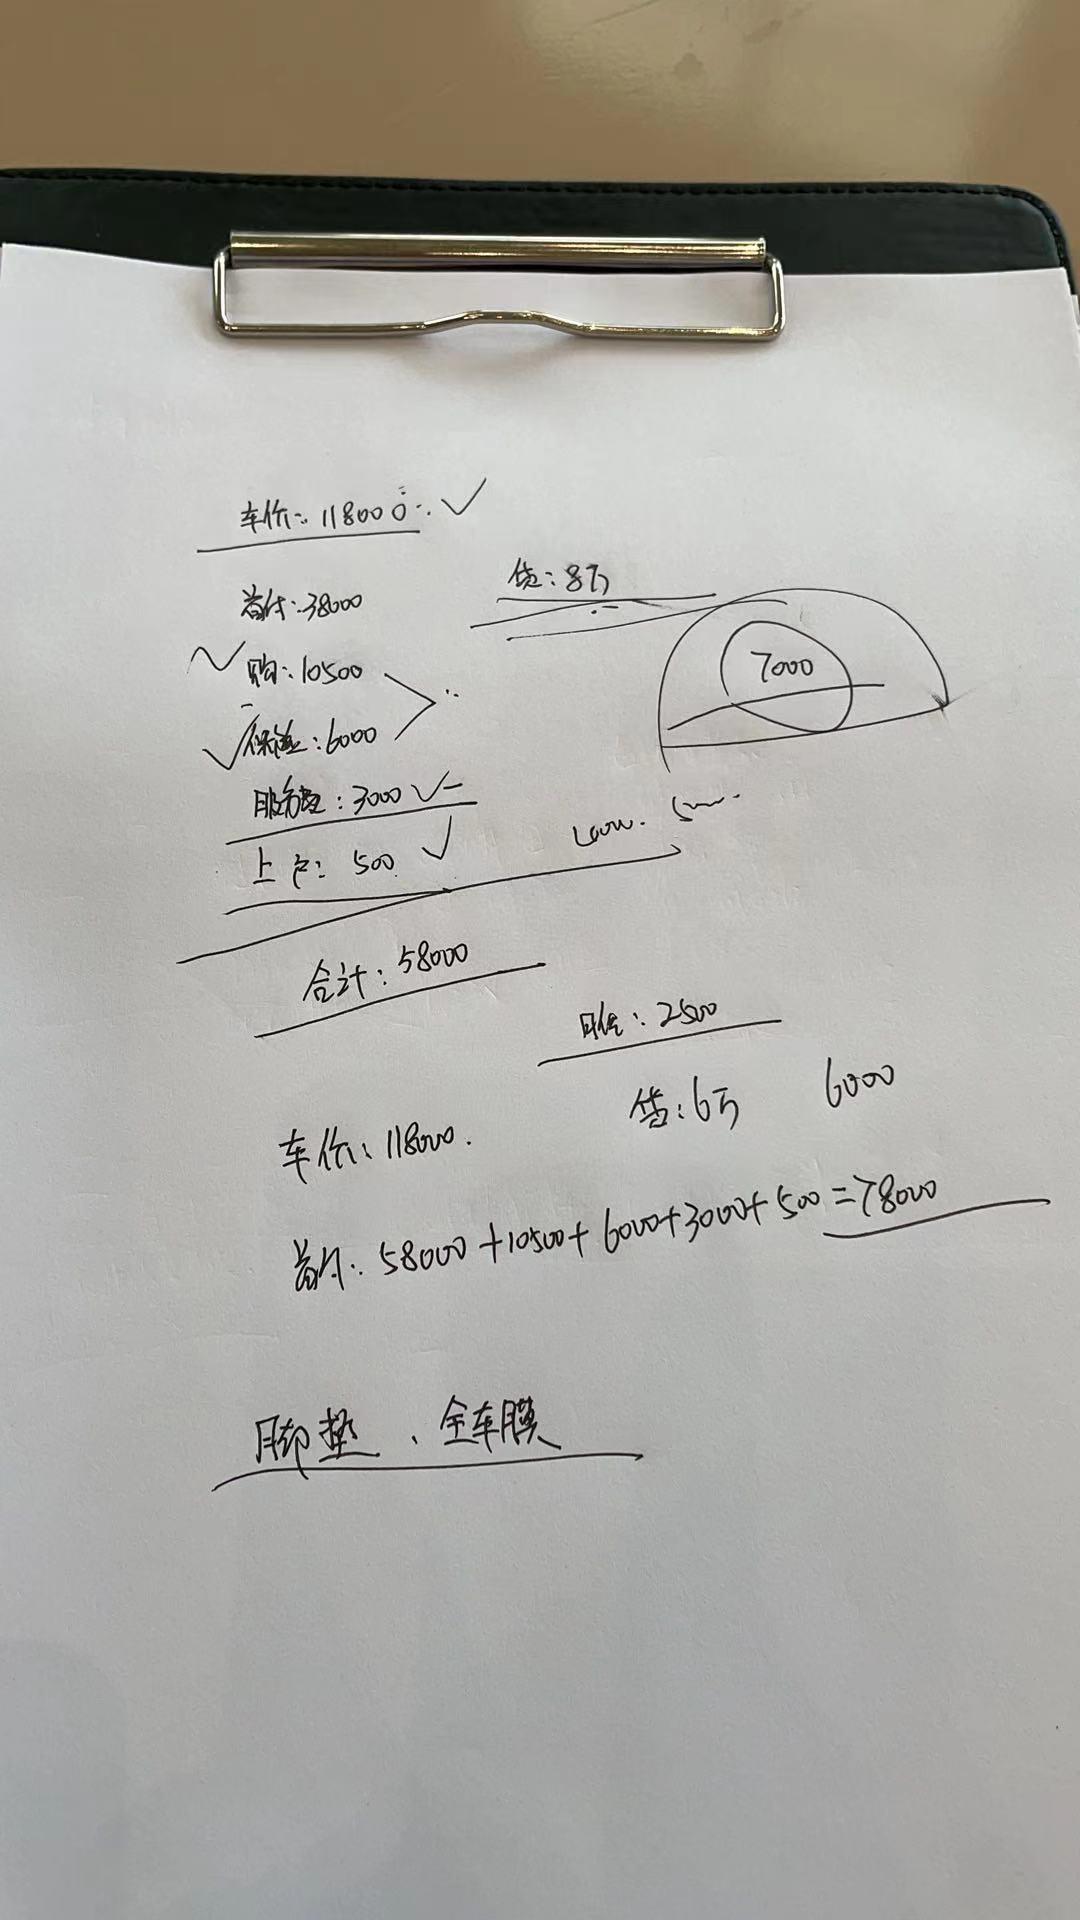 车价: 118000
首付: 38000
贷: 8万
购: 10500
7000
保险: 6000
服务费: 3000
上户: 500
合计: 58000
月供: 2500
贷: 6万 6000
车价: 118000.
首付: 58000+10500+6000+3000+500=78000
脚垫、全车膜